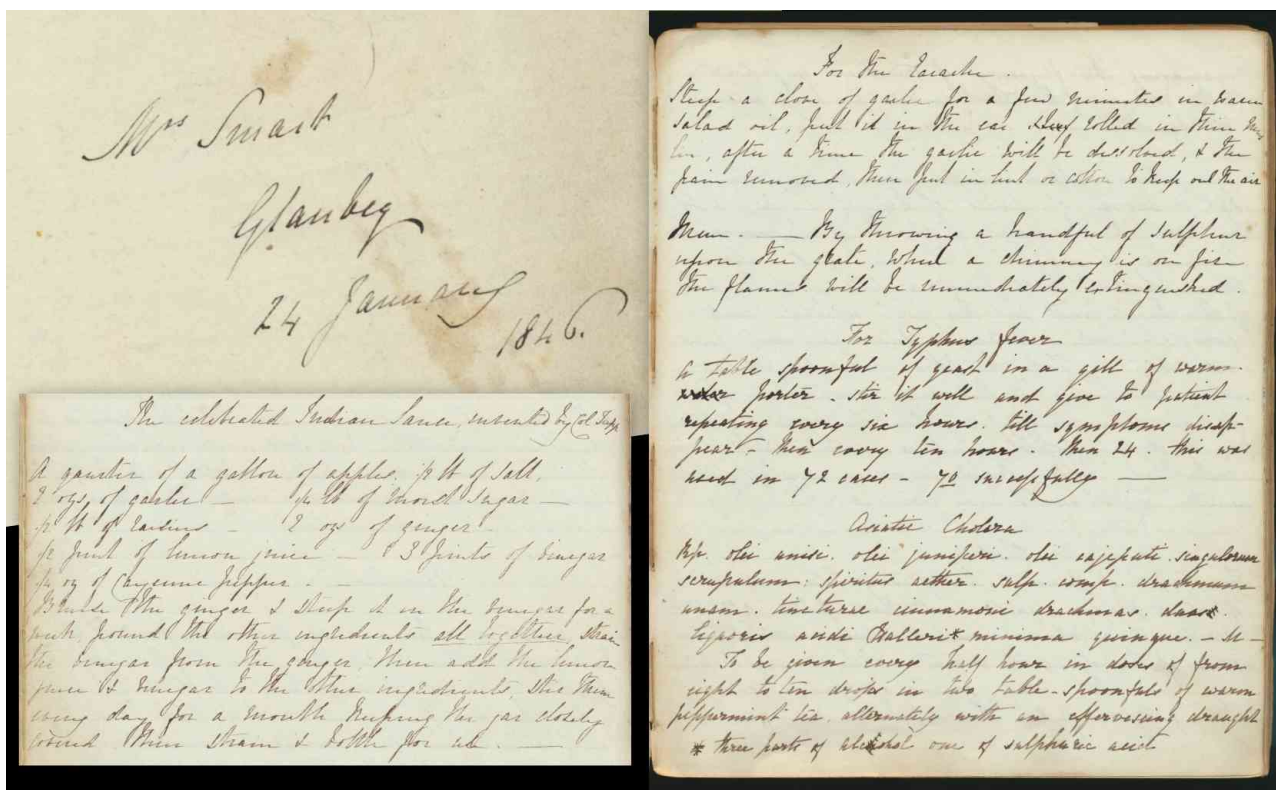 Mrs Smart
Glanbeg
24 January
1846.
The celebrated Indian Sauce, invented by Col
A quarter of a gallon of apples. ½ lb of Salt.
2 ozs. of garlic — ½ lb of moist Sugar —
½ lb of Raisins — 2 ozs of ginger —
½ pint of lemon juice — 3 pints of vinegar
oz of Cayenne pepper. —
Bruise the ginger & steep it in the vinegar for a
week, pound the other ingredients all together, strain
the vinegar from the ginger, then add the lemon
juice & vinegar to the other ingredients, stir them
every day for a month keeping the jar closely
covered then strain & bottle for use. —
For the Earache.
Steep a clove of garlic for a few minutes in warm
salad oil, put it in the ear rolled in thin mus
lin, after a time the garlic will be dissolved, & the
pain removed, then put in lint or cotton to keep out the air
Mem. — By throwing a handful of sulphur
upon the grate, when a chimney is on fire
the flames will be immediately extinguished.
For Typhus fever
A table spoonful of yeast in a gill of warm
porter. stir it well and give to patient
repeating every six hours. till symptoms disap-
pear — then every ten hours. then 24. this was
used in 72 cases — 70 successfully —
Asiatic Cholera
Rp. olei anisi. olei juniperi. olei cajeputi. singulorum
scrupulum: spiritus aether. sulp. comp. drachmam
unam. tincturae cinnamoni drachmas. duas.
liquoris acidi Halleri* minima quinque. — M —
To be given every half hour in doses of from
eight to ten drops in two table-spoonfuls of warm
peppermint tea. alternately with an effervescing draught
* three parts of alcohol one of sulphuric acid